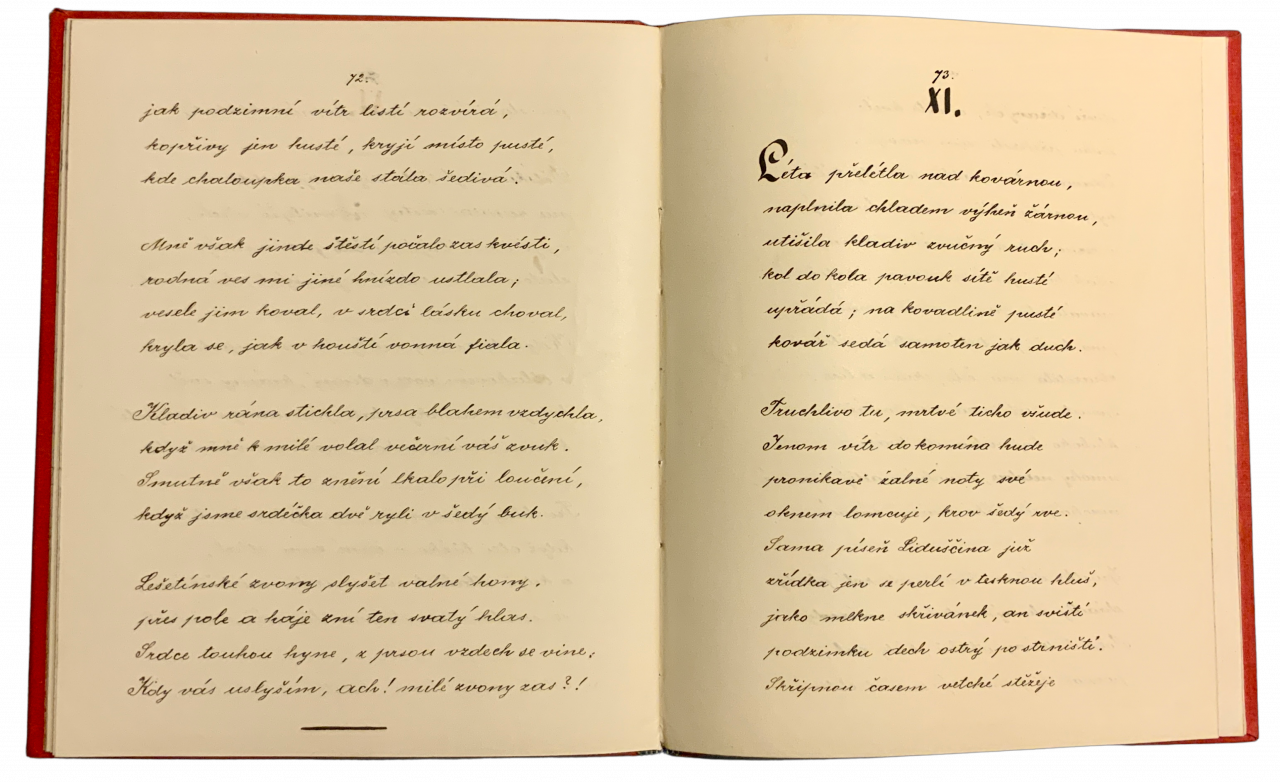 72.
jak podzimní vítr listí rozvírá,
kopřivy jen husté, kryjí místo pusté,
kde chaloupka naše stála šedivá.
Mně však jinde štěstí počalo zas kvésti,
rodná ves mi jiné hnízdo ustlala;
vesele jim koval, v srdci lásku choval,
kryla se, jak v houští vonná fiala.
Kladiv rána stichla, prsa blahem vzdychla,
když mně k milé volal večerní váš zvuk.
Smutně však to znění lkalo při loučení,
když jsme srdéčka dvě ryli v šedý buk.
Lešetínské zvony slyšet valné hony,
přes pole a háje zní ten svatý hlas.
Srdce touhou hyne, z prsou vzdech se vine;
Kdy vás uslyším, ach! milé zvony zas?!
73.
XI.
Léta přelétla nad kovárnou,
naplnila chladem výheň žárnou,
utišila kladiv zvučný ruch;
kol do kola pavouk sítě husté
upřádá; na kovadlině pusté
kovář sedá samoten jak duch.
Truchlivo tu, mrtvé ticho všude.
Jenom vítr do komína hude
pronikavě žalné noty své
oknem lomcuje, krov šedý rve.
Sama píseň Liduščina již
zřídka jen se perlí v tesknou hluš,
jako mlkne skřivánek, an sviští
podzimku dech ostrý po strništi.
Skřipnou časem vetché stěžeje